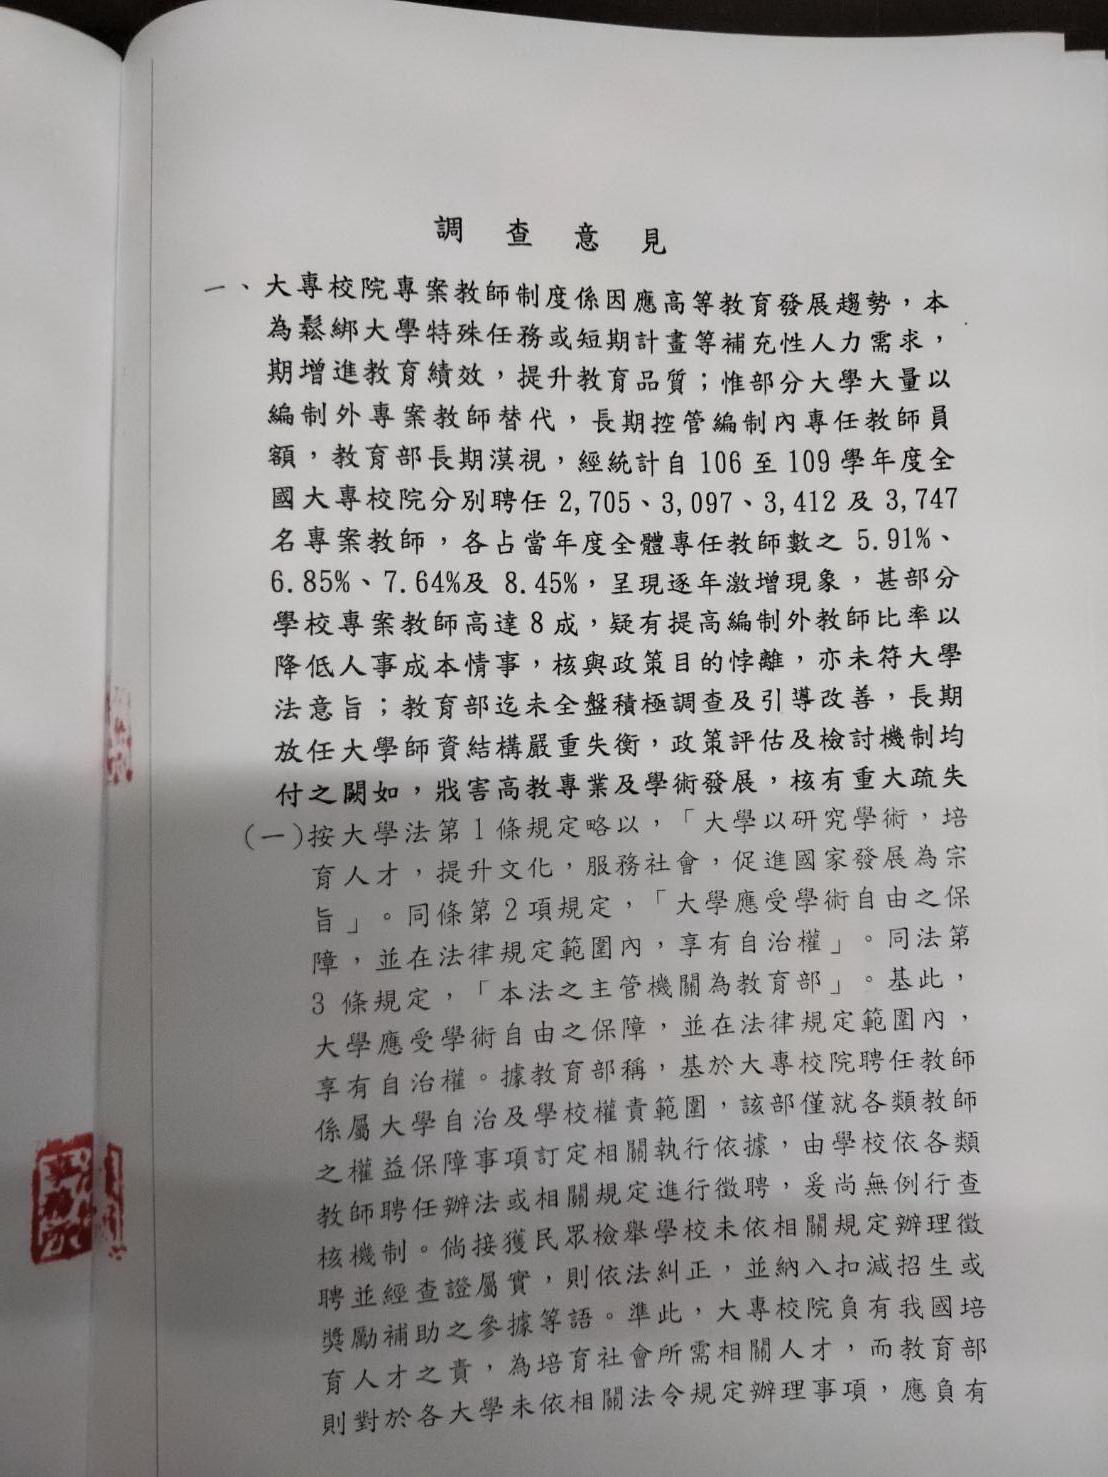 調查意見
一、大專校院專案教師制度係因應高等教育發展趨勢，本
為鬆綁大學特殊任務或短期計畫等補充性人力需求，
期增進教育績效，提升教育品質；惟部分大學大量以
編制外專案教師替代，長期控管編制內專任教師員
額，教育部長期漠視，經統計自106至109學年度全
國大專校院分別聘任2,705、3,097、3,412及3,747
名專案教師，各占當年度全體專任教師數之5.91%、
6.85%、7.64%及8.45%，呈現逐年激增現象，甚部分
學校專案教師高達8成，疑有提高編制外教師比率以
降低人事成本情事，核與政策目的悖離，亦未符大學
法意旨；教育部迄未全盤積極調查及引導改善，長期
放任大學師資結構嚴重失衡，政策評估及檢討機制均
付之闕如，戕害高教專業及學術發展，核有重大疏失
(一)按大學法第1條規定略以，「大學以研究學術，培
育人才，提升文化，服務社會，促進國家發展為宗
旨」。同條第2項規定，「大學應受學術自由之保
障，並在法律規定範圍內，享有自治權」。同法第
3條規定，「本法之主管機關為教育部」。基此，
大學應受學術自由之保障，並在法律規定範圍內，
享有自治權。據教育部稱，基於大專校院聘任教師
係屬大學自治及學校權責範圍，該部僅就各類教師
之權益保障事項訂定相關執行依據，由學校依各類
教師聘任辦法或相關規定進行徵聘，爰尚無例行查
核機制。倘接獲民眾檢舉學校未依相關規定辦理徵
聘並經查證屬實，則依法糾正，並納入扣減招生或
獎勵補助之參據等語。準此，大專校院負有我國培
育人才之責，為培育社會所需相關人才，而教育部
則對於各大學未依相關法令規定辦理事項，應負有